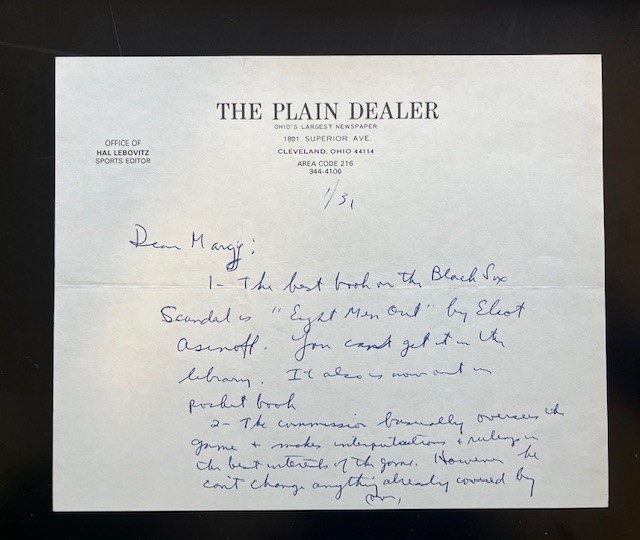 THE PLAIN DEALER
OHIO'S LARGEST NEWSPAPER
1801 SUPERIOR AVE.
CLEVELAND, OHIO 44114
AREA CODE 216
344-4106
OFFICE OF
HAL LEBOVITZ
SPORTS EDITOR
1/31
Dear Margy:
1- The best book on the Black Sox
Scandal is "Eight Men Out" by Eliot
Asinoff. You can get it in the
library. It also is now out in
pocket book
2- The commissior basically oversees the
game + makes interpretations + rulings in
the best interests of the game. However he
can't change anything already covered by